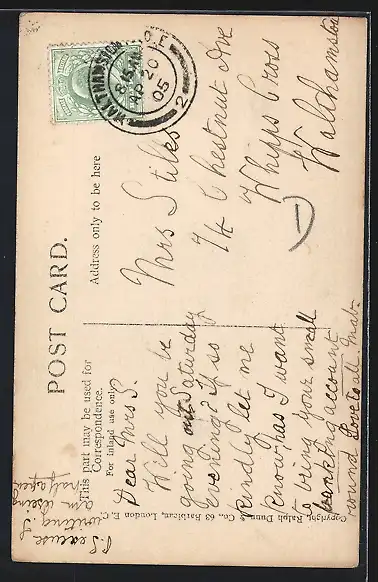 POST CARD.
This part may be used for
Correspondence.
For inland use only
Address only to be here
WALTHAMSTOW S.O. E
8.15 AM
AP 20
05
2
Mrs Stiles
74 Chestnut Ave
Whipps Cross
Walthamstow
Dear Mrs S.
Will you be
going out Saturday
evening? If so
kindly let me
know as I want
to bring your small
banking account
round Love to all. Mab.
P.S excuse
writing if
am using
Copyright, Ralph Dunn & Co., 63 Barbican, London E.C.